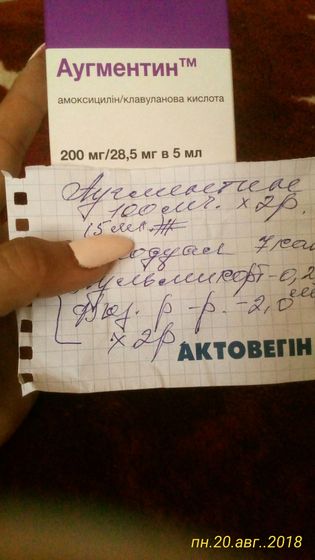 Аугментин™
амоксицилін/клавуланова кислота
200 мг/28,5 мг в 5 мл
Аугментине
100 мг. x 2р.
15 мл
одуал 7 кап
ульмикорт-0,2
Физ. р-р. -2,0
мл
x 2р
АКТОВЕГІН
пн.20.авг..2018